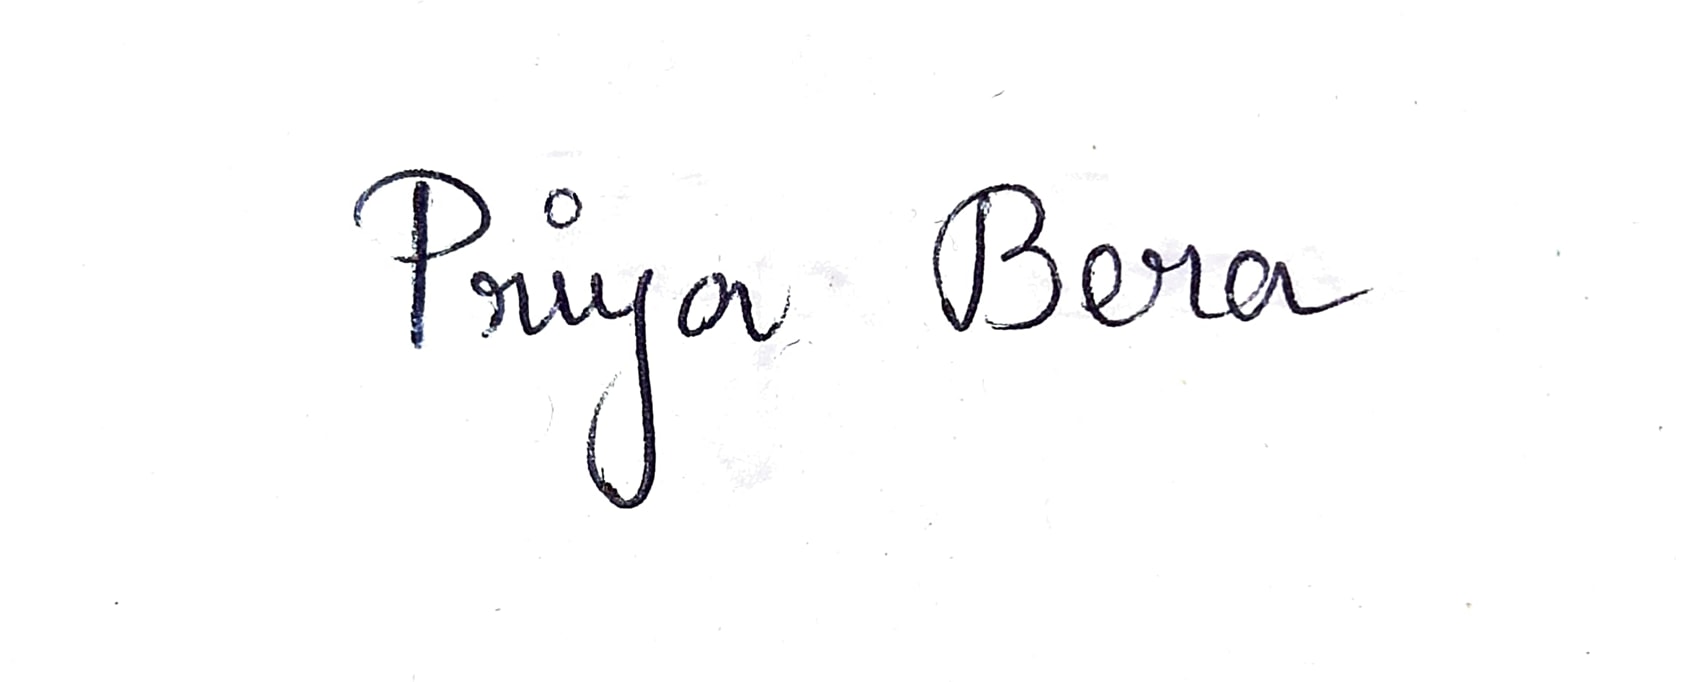 Priya Bera